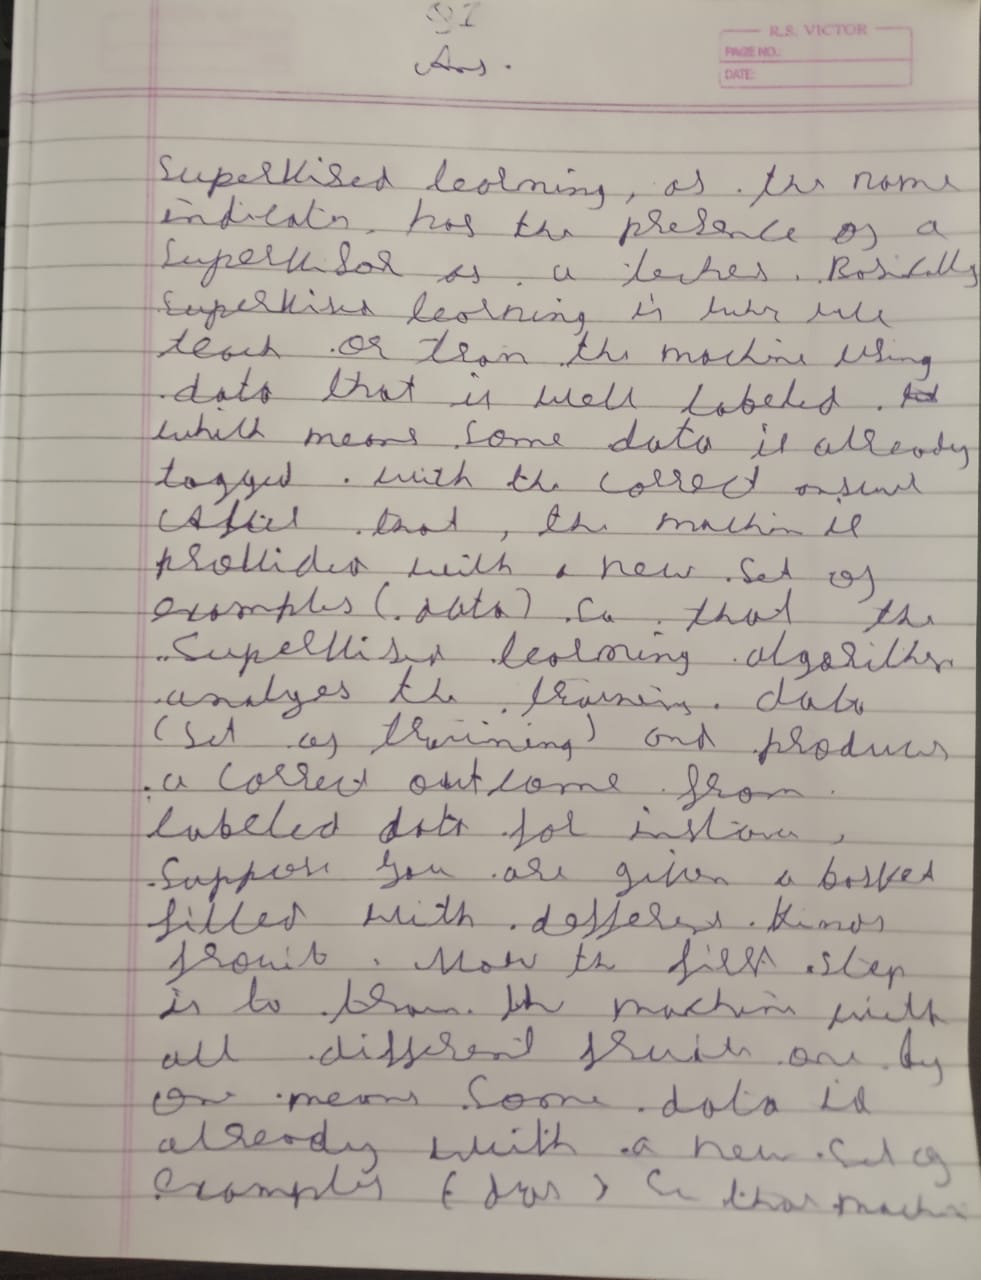 Q1
Ans.
R.S. VICTOR
PAGE NO.:
DATE:
Supervised learning, as the name
indicates, has the presence of a
Supervisor as a teacher. Basically
Supervised learning is when we
teach or train the machine using
data that is well labeled.
which means some data is already
tagged with the correct answer
After that, the machine is
provided with a new set of
examples (data) so that the
Supervised learning algorithm
analyes the training data
(set of training) and produces
a correct outcome from
labeled data for instance,
Suppose you are given a basket
filled with different kinds
fruits. Now the first step
is to train the machine with
all different fruits one by
one means some data is
already with a new set of
examples so that machine